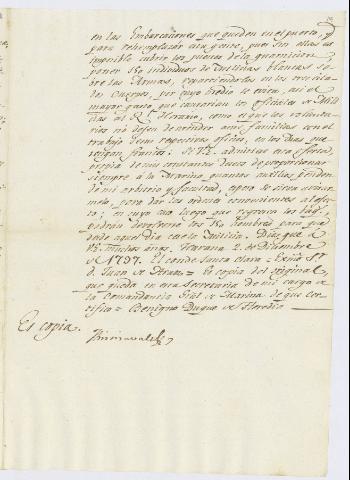 en las Embarcaciones que queden en el puerto, y
para rehemplazar esta gente, pues sin ellas es
imposible cubrir los puestos de la guarnicion
poner 150 individuos de Milicias blancas so-
bre las Armas, repartiendolos en los
Cuerpos, por cuyo medio se evita, asi el
mayor gasto, que causarian los oficiales de Mili-
cias al R.l Herario, como el que los volunta-
rios no dejen de atender sus familias con el
trabajo de sus respectivos oficios, en los dias que
tengan francos. Si V.E. admitiese esta oferta,
propia de mis constantes deseos de proporcionar
siempre á la Marina quantos auxilios penden
de mi arbitrio y facultad, espero se sirva avisar-
melo, para dar las ordenes convenientes al efec-
to; en cuyo caso luego que regresen los
podrán devolverse los 150 hombres para
desde aquel dia cese la Milicia. Dios gue á
V.E. muchos años. Havana 2. de Diciembre
de 1797. El conde de Santa Clara = Exmo S.r
D. Juan de Araoz = Es copia del original,
que queda en esta Secretaria de mi cargo de
la Comandancia Gral de Marina de que cer-
tifico = Benigno Duque de Heredia
Es copia.